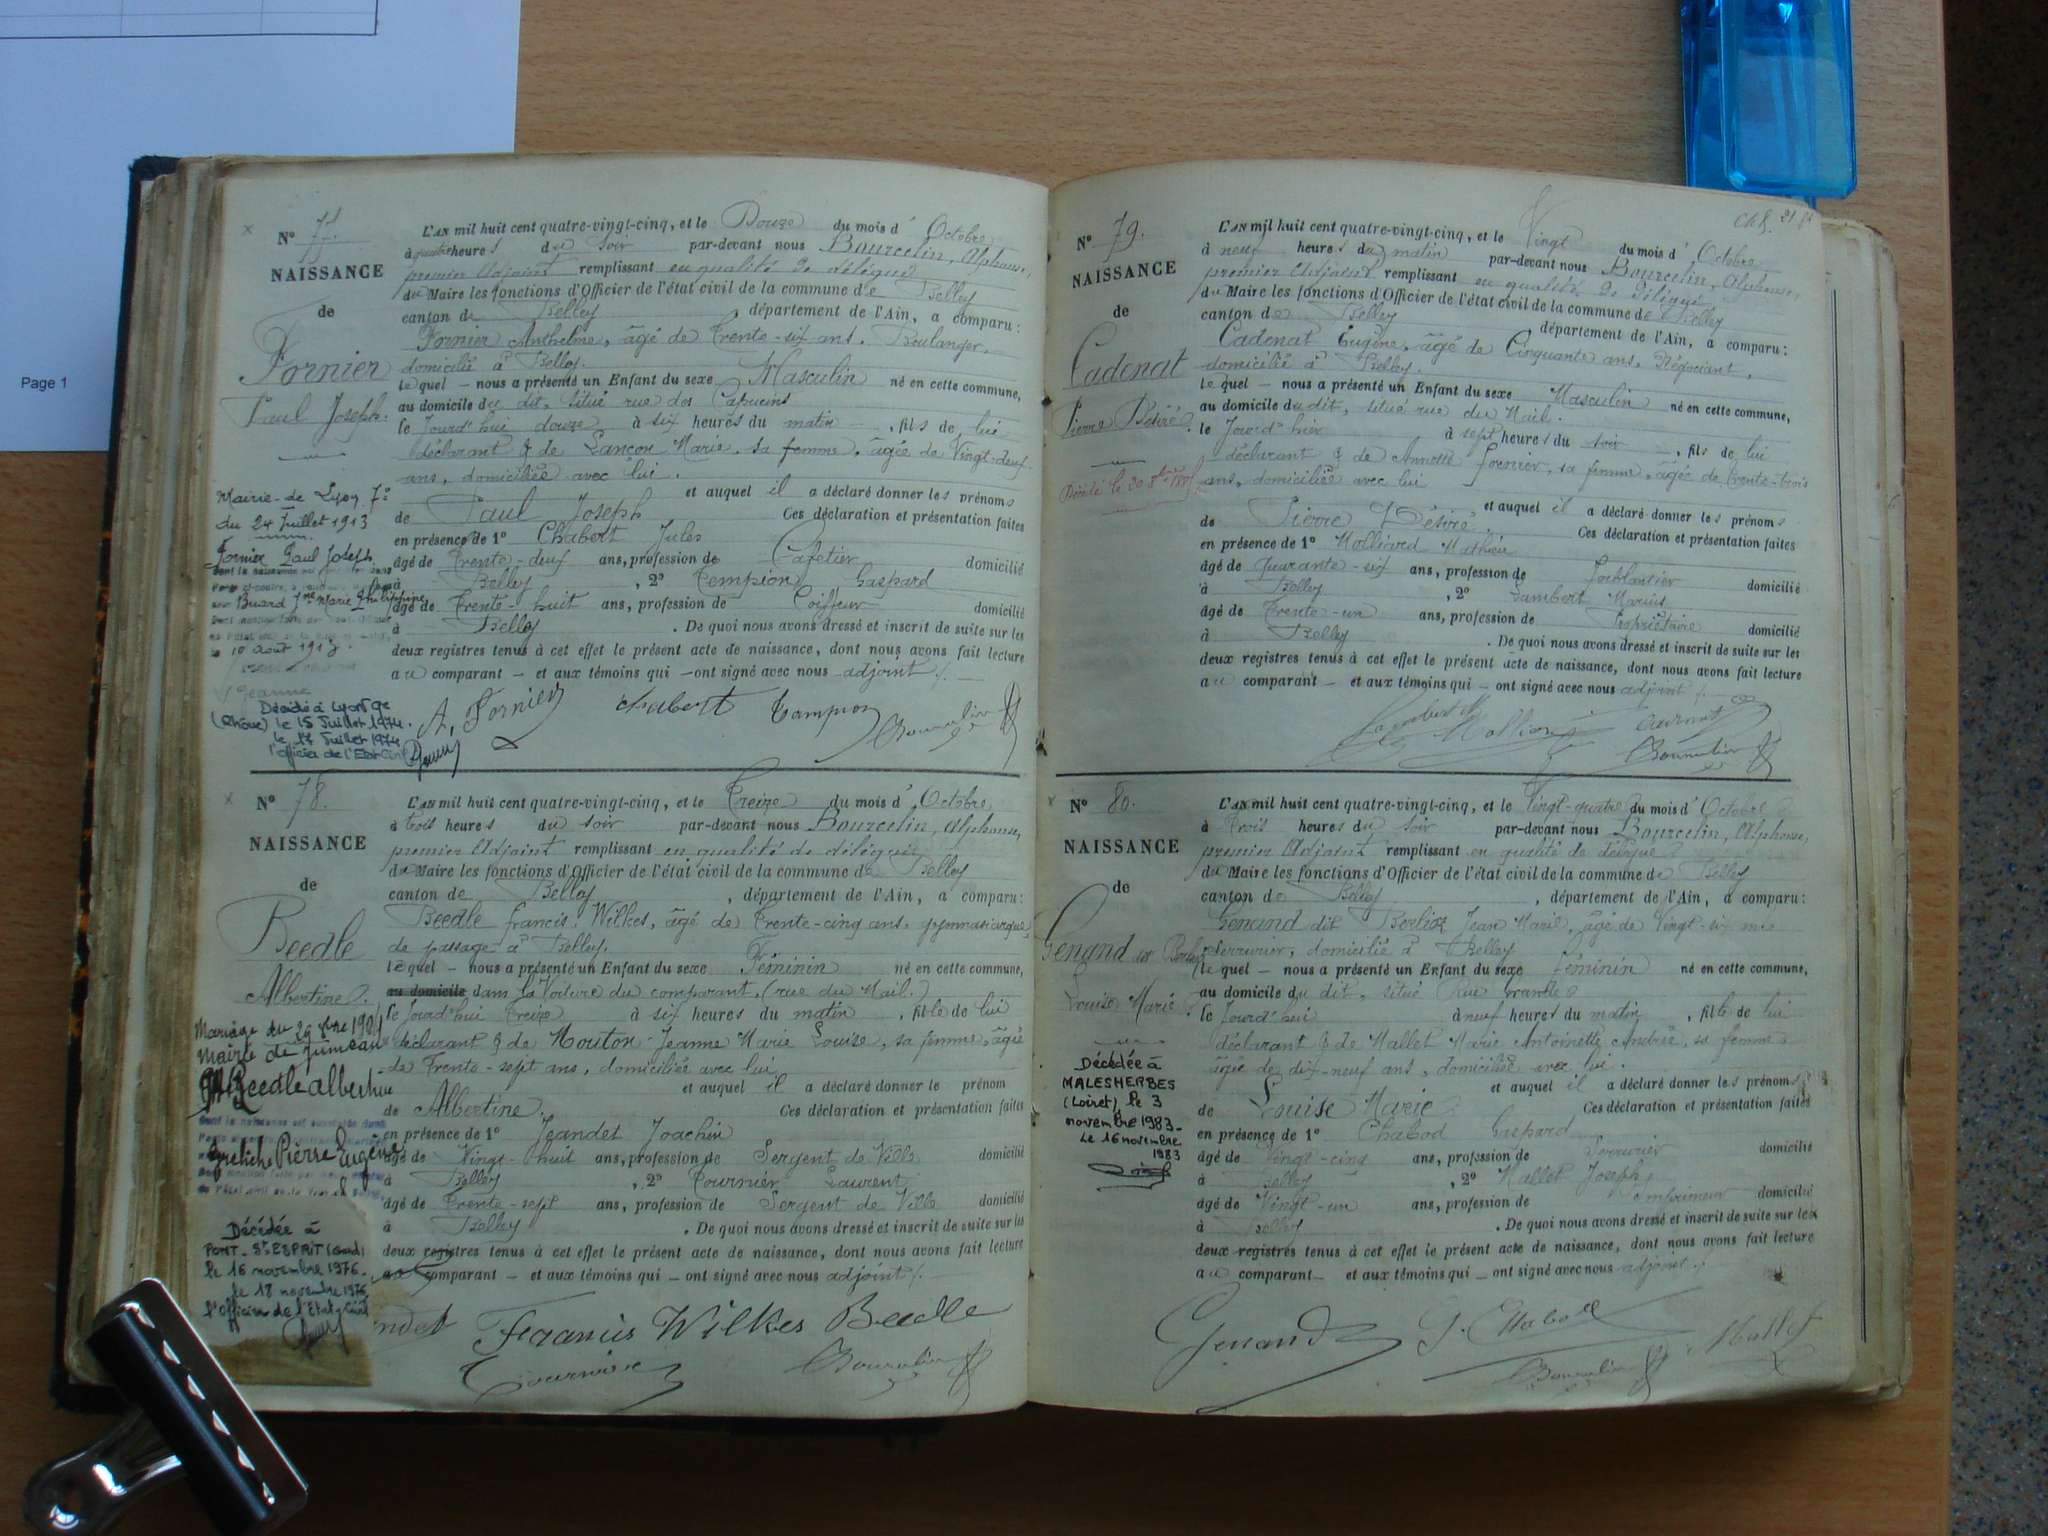 Page 1
N° 77.
NAISSANCE
de
Fornier
Paul Joseph.
Mairie de Lyon 7e
du 24 Juillet 1913
Fornier Paul Joseph
Buard Jne Marie Philippine
10 Août 1913.
Jeanne
Décédé à Lyon 9e
(Rhône) le 15 Juillet 1974.
le 17 Juillet 1974
l'officier de l'Etat Civil
L'AN mil huit cent quatre-vingt-cinq, et le Douze du mois d' Octobre
à quatre heures du soir par-devant nous Bourcelin, Alphonse,
premier Adjoint remplissant en qualité de délégué
du Maire les fonctions d'Officier de l'état civil de la commune de Belley
canton de Belley, département de l'Ain, a comparu :
Fornier Anthelme, âgé de Trente-six ans, Boulanger,
domicilié à Belley.
lequel — nous a présenté un Enfant du sexe Masculin né en cette commune,
au domicile du dit, situé rue des Capucins
le Jourd'hui douze à six heures du matin, fils de lui
déclarant & de Lançon Marie, sa femme, âgée de Vingt-neuf
ans, domiciliée avec lui.
et auquel il a déclaré donner les prénoms
de Paul Joseph Ces déclaration et présentation faites
en présence de 1° Chabert Jules
âgé de Trente-deux ans, profession de Cafetier domicilié
à Belley, 2° Tempion Gaspard
âgé de Trente-huit ans, profession de Coiffeur domicilié
à Belley. De quoi nous avons dressé et inscrit de suite sur les
deux registres tenus à cet effet le présent acte de naissance, dont nous avons fait lecture
au comparant — et aux témoins qui — ont signé avec nous adjoint /.
A, Fornier Chabert Tampion Bourcelin
N° 78.
NAISSANCE
de
Beedle
Albertine.
Mariage du 29
Mairie de Jumeau
Beedle albertine
Pierre Eugène
Décédée à
PONT-St ESPRIT (Gard)
le 16 novembre 1976.
le 18 novembre 1976
l'Officier de l'Etat Civil
L'AN mil huit cent quatre-vingt-cinq, et le Treize du mois d' Octobre
à trois heures du soir par-devant nous Bourcelin, Alphonse,
premier Adjoint remplissant en qualité de délégué
du Maire les fonctions d'Officier de l'état civil de la commune de Belley
canton de Belley, département de l'Ain, a comparu :
Beedle Francis Wilkes, âgé de Trente-cinq ans, gymnasiarque
de passage à Belley.
lequel — nous a présenté un Enfant du sexe Féminin né en cette commune,
au domicile dans la Voiture du comparant, (rue du Mail.)
le Jourd'hui treize à six heures du matin, fille de lui
déclarant & de Mouton Jeanne Marie Louise, sa femme, âgée
de Trente-sept ans, domiciliée avec lui
et auquel il a déclaré donner le prénom
de Albertine. Ces déclaration et présentation faites
en présence de 1° Jeandet Joachin
âgé de Vingt-huit ans, profession de Sergent de Ville domicilié
à Belley, 2° Tournier Laurent
âgé de Trente-sept ans, profession de Sergent de Ville domicilié
à Belley. De quoi nous avons dressé et inscrit de suite sur les
deux registres tenus à cet effet le présent acte de naissance, dont nous avons fait lecture
au comparant — et aux témoins qui — ont signé avec nous adjoint /.
ndet Francis Wilkes Beedle
Tournier Bourcelin
N° 79.
NAISSANCE
de
Cadenat
Pierre Désiré.
L'AN mil huit cent quatre-vingt-cinq, et le Vingt du mois d' Octobre
à neuf heures du matin par-devant nous Bourcelin, Alphonse,
premier Adjoint remplissant en qualité de délégué
du Maire les fonctions d'Officier de l'état civil de la commune de Belley
canton de Belley département de l'Ain, a comparu :
Cadenat Eugène, âgé de Cinquante ans, Négociant,
domicilié à Belley.
lequel — nous a présenté un Enfant du sexe Masculin né en cette commune,
au domicile du dit, situé rue du Mail.
le Jourd'hier à sept heures du soir, fils de lui
déclarant & de Annette Fornier, sa femme, âgée de Trente-trois
ans, domiciliée avec lui
et auquel il a déclaré donner les prénoms
de Pierre Désiré Ces déclaration et présentation faites
en présence de 1° Molliard Mathieu
âgé de Quarante-six ans, profession de Ferblantier domicilié
à Belley, 2° Lambert Marius
âgé de Trente-un ans, profession de Propriétaire domicilié
à Belley. De quoi nous avons dressé et inscrit de suite sur les
deux registres tenus à cet effet le présent acte de naissance, dont nous avons fait lecture
au comparant — et aux témoins qui — ont signé avec nous adjoint /.
Lambert Bourcelin
N° 80.
NAISSANCE
de
Genand dit Berlioz
Louise Marie.
Décédée à
MALESHERBES
(Loiret) le 3
novembre 1983.
Le 16 novembre
1983
L'AN mil huit cent quatre-vingt-cinq, et le Vingt-quatre du mois d' Octobre
à Trois heures du soir par-devant nous Bourcelin, Alphonse,
premier Adjoint remplissant en qualité de délégué
du Maire les fonctions d'Officier de l'état civil de la commune de Belley
canton de Belley, département de l'Ain, a comparu :
Genand dit Berlioz Jean Marie, âgé de Vingt-six ans
Serrurier, domicilié à Belley
lequel — nous a présenté un Enfant du sexe féminin né en cette commune,
au domicile du dit, situé Rue Grande
le Jourd'hui à neuf heures du matin, fille de lui
déclarant & de Mallet Marie Antoinette Andrée, sa femme
âgée de dix-neuf ans, domiciliée avec lui.
et auquel il a déclaré donner les prénoms
de Louise Marie Ces déclaration et présentation faites
en présence de 1° Chabod Gaspard
âgé de Vingt-cinq ans, profession de Serrurier domicilié
à Belley, 2° Mallet Joseph
âgé de Vingt-un ans, profession de Imprimeur domicilié
à Belley. De quoi nous avons dressé et inscrit de suite sur les
deux registres tenus à cet effet le présent acte de naissance, dont nous avons fait lecture
au comparant — et aux témoins qui — ont signé avec nous adjoint /.
Genand G. Chabod Mallet
Bourcelin